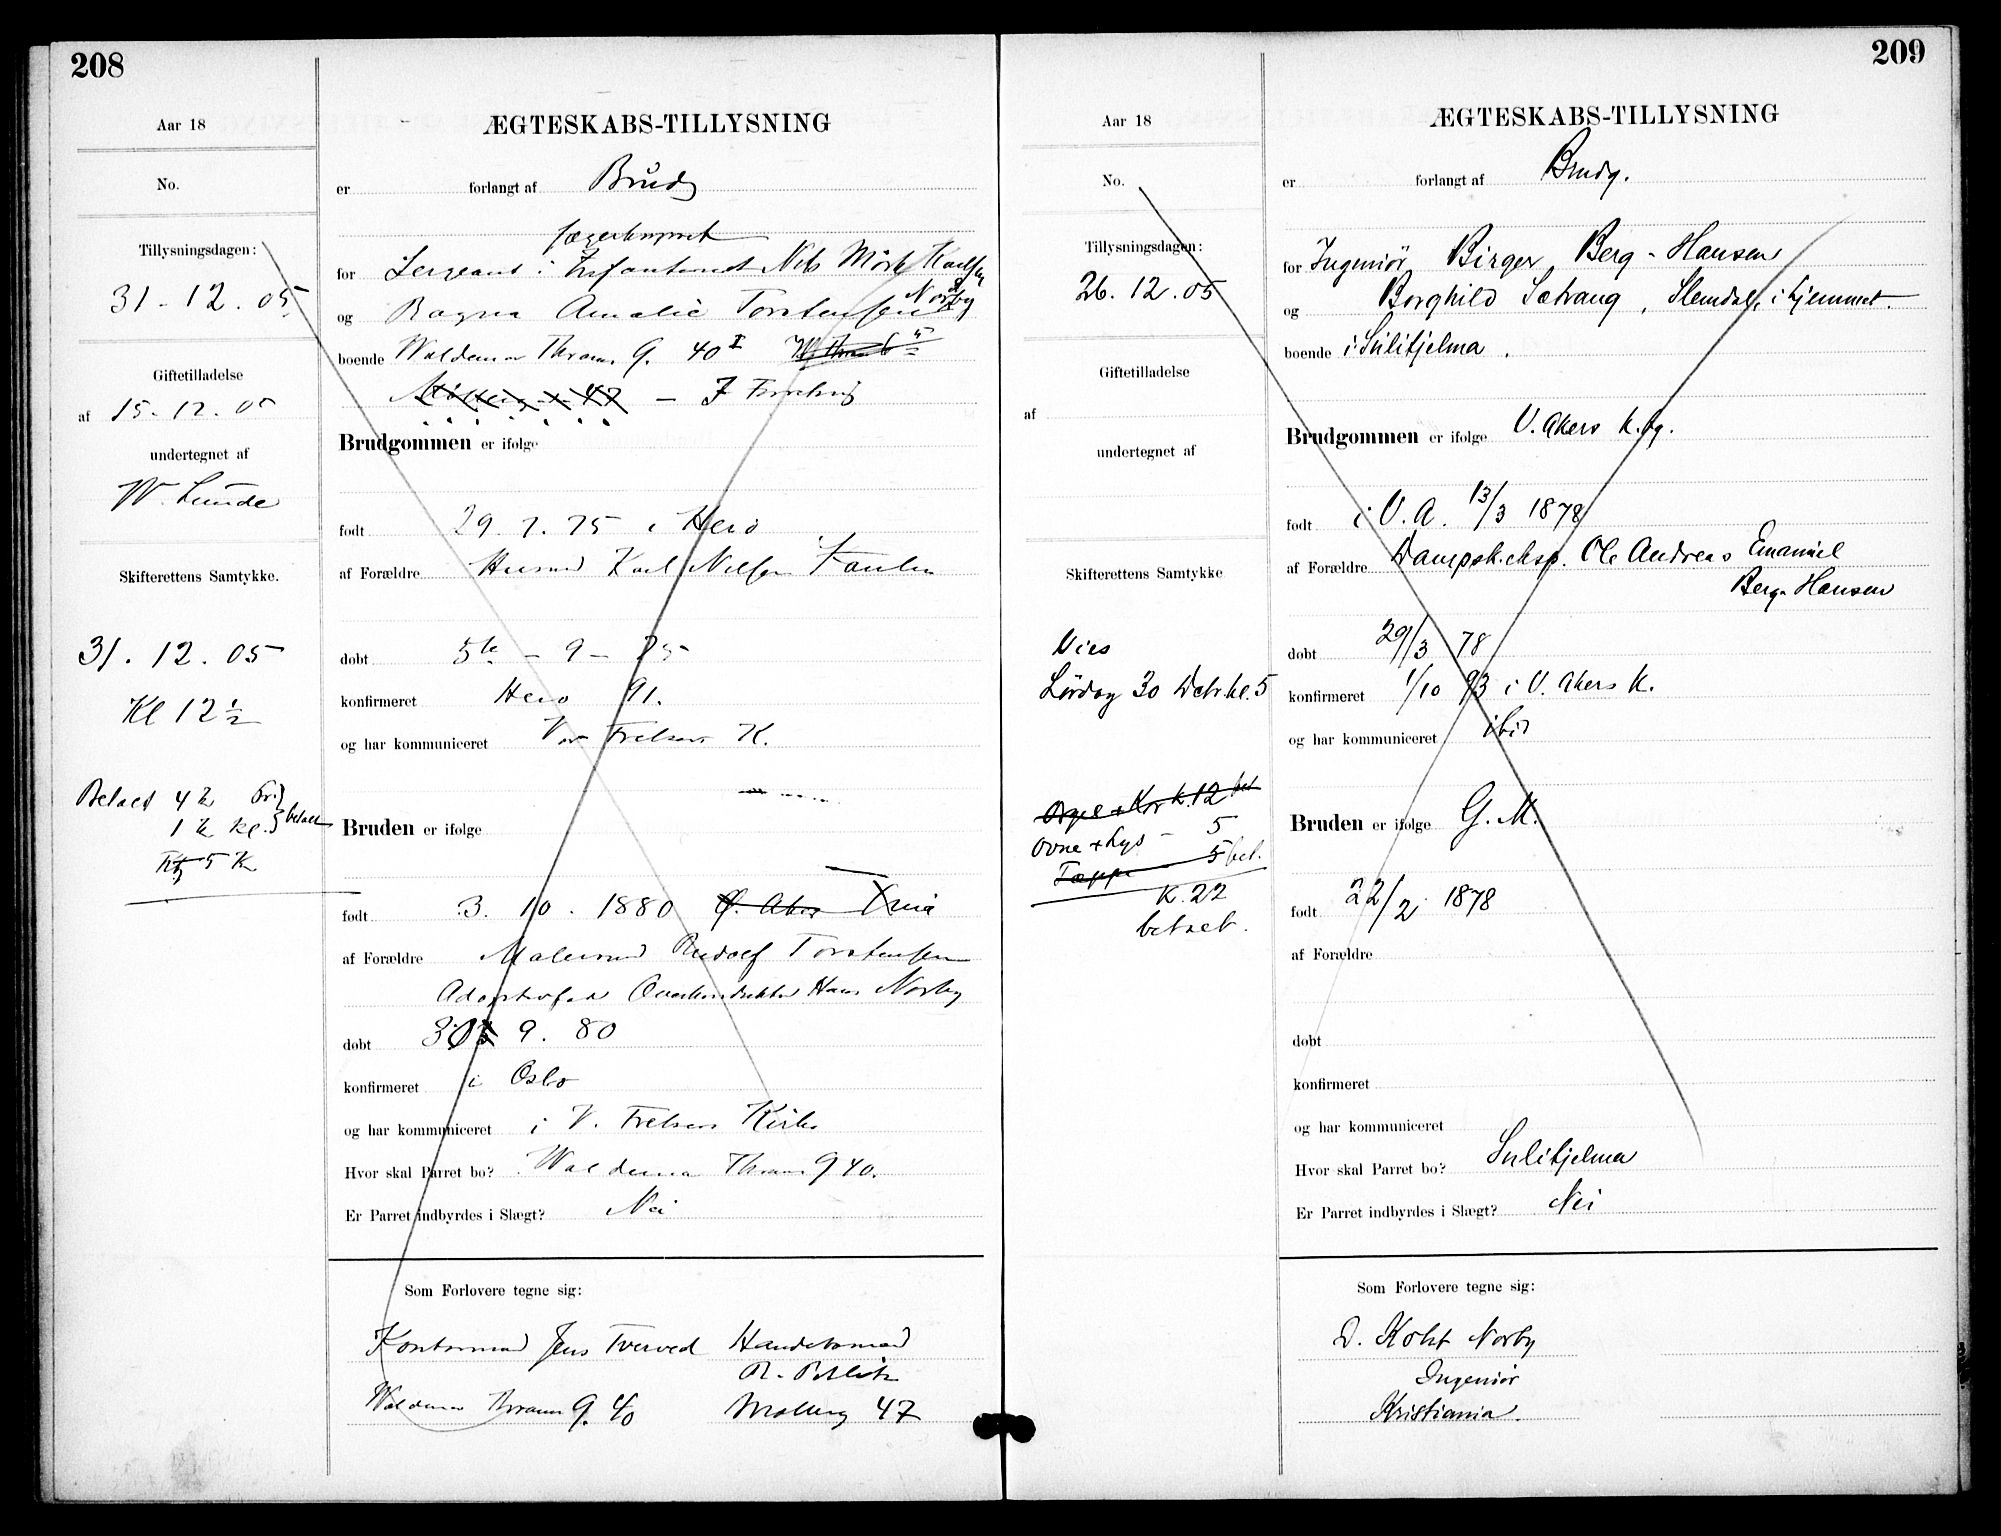 208
Aar 18
No.
Tillysningsdagen:
31-12.05
Giftetilladelse
af 15-12-05
undertegnet af
W. Lunde
Skifterettens Samtykke.
31.12.05
Kl 12 1/2
Betalt 4 K
1 K Kl. betalt
5 K
ÆGTESKABS-TILLYSNING
er forlangt af Brudg
for Sergeant i Nils Mørk Karlsen
og Ragna Amalie Torstensen Norby
boende Waldemar Thranes G. 40 II
47
Brudgommen er ifølge
født 29.7.75 i Herø
af Forældre Karl Nilsen
døbt 5te - 9 - 75
konfirmeret Herø 91.
og har kommuniceret Vor Frelsers K.
Bruden er ifølge
født 3. 10. 1880 Ø. Aker Xnia
af Forældre Malersvend Rudolf Torstensen
Hans Norby
døbt 30 9. 80
konfirmeret i Oslo
og har kommuniceret i V. Frelsers Kirke
Hvor skal Parret bo? Waldemar Thranes G 40.
Er Parret indbyrdes i Slægt? Nei
Som Forlovere tegne sig:
Kontormand Jens Tverved Handelsmand
Waldemar Thranes G. 40 Møllerg 47
209
Aar 18
No.
Tillysningsdagen:
26.12.05
Giftetilladelse
af
undertegnet af
Skifterettens Samtykke
Vies
Lördag 30 Debr kl. 5
Orgel + Kor K. 12 bet
Ovne + Lys - 5
Tæppe 5 bet.
K. 22
betalt.
ÆGTESKABS-TILLYSNING
er forlangt af Brudg.
for Ingeniör Birger Berg-Hansen
og Borghild Sætrang, Slemdal, i hjemmet.
boende i Sulitjelma.
Brudgommen er ifølge V. Akers K.bg.
født i V.A. 13/3 1878
af Forældre Dampsk.eksp. Ole Andreas Emanuel
Berg-Hansen
døbt 29/3 78
konfirmeret 1/10 93 i V. Akers K.
og har kommuniceret ibid
Bruden er ifølge G.M.
født 22/2 1878
af Forældre
døbt
konfirmeret
og har kommuniceret
Hvor skal Parret bo? Sulitjelma
Er Parret indbyrdes i Slægt? Nei
Som Forlovere tegne sig:
D. Koht Norby
Ingeniör
Kristiania.